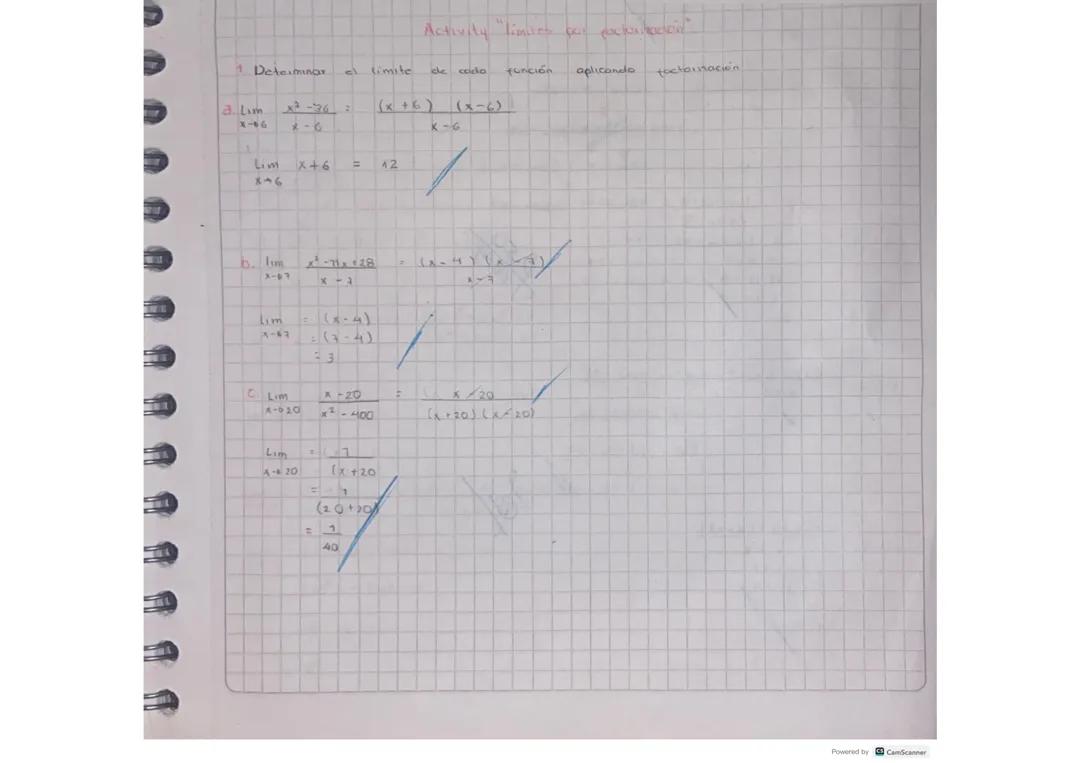 Activity "límites por factorización"
1. Determinar el límite de cada función aplicando factorización
a. Lim x² - 36 = (x + 6) (x - 6)
x→6 x - 6 x - 6
Lim x + 6 = 12
x→6
b. lim x² - 11x + 28 = (x - 4) (x - 7)
x→7 x - 7 x - 7
Lim = (x - 4)
x→7 = (7 - 4)
= 3
c. Lim x - 20 = x - 20
x→20 x² - 400 (x + 20) (x - 20)
Lim = 1
x→20 (x + 20
= 1
(20 + 20)
= 1
40
Powered by CS CamScanner